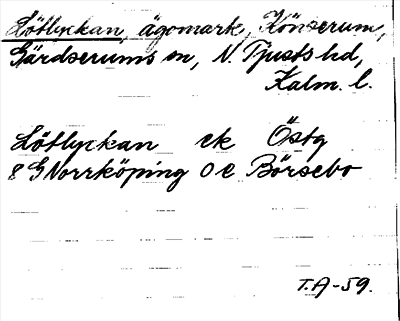 Lötlyckan, ägomark, Könserum,
Gärdserums sn, N. Tjusts hd,
Kalm. l.
Lötlyckan ek Östg
8 G Norrköping O e Börsebo
T.A-59.